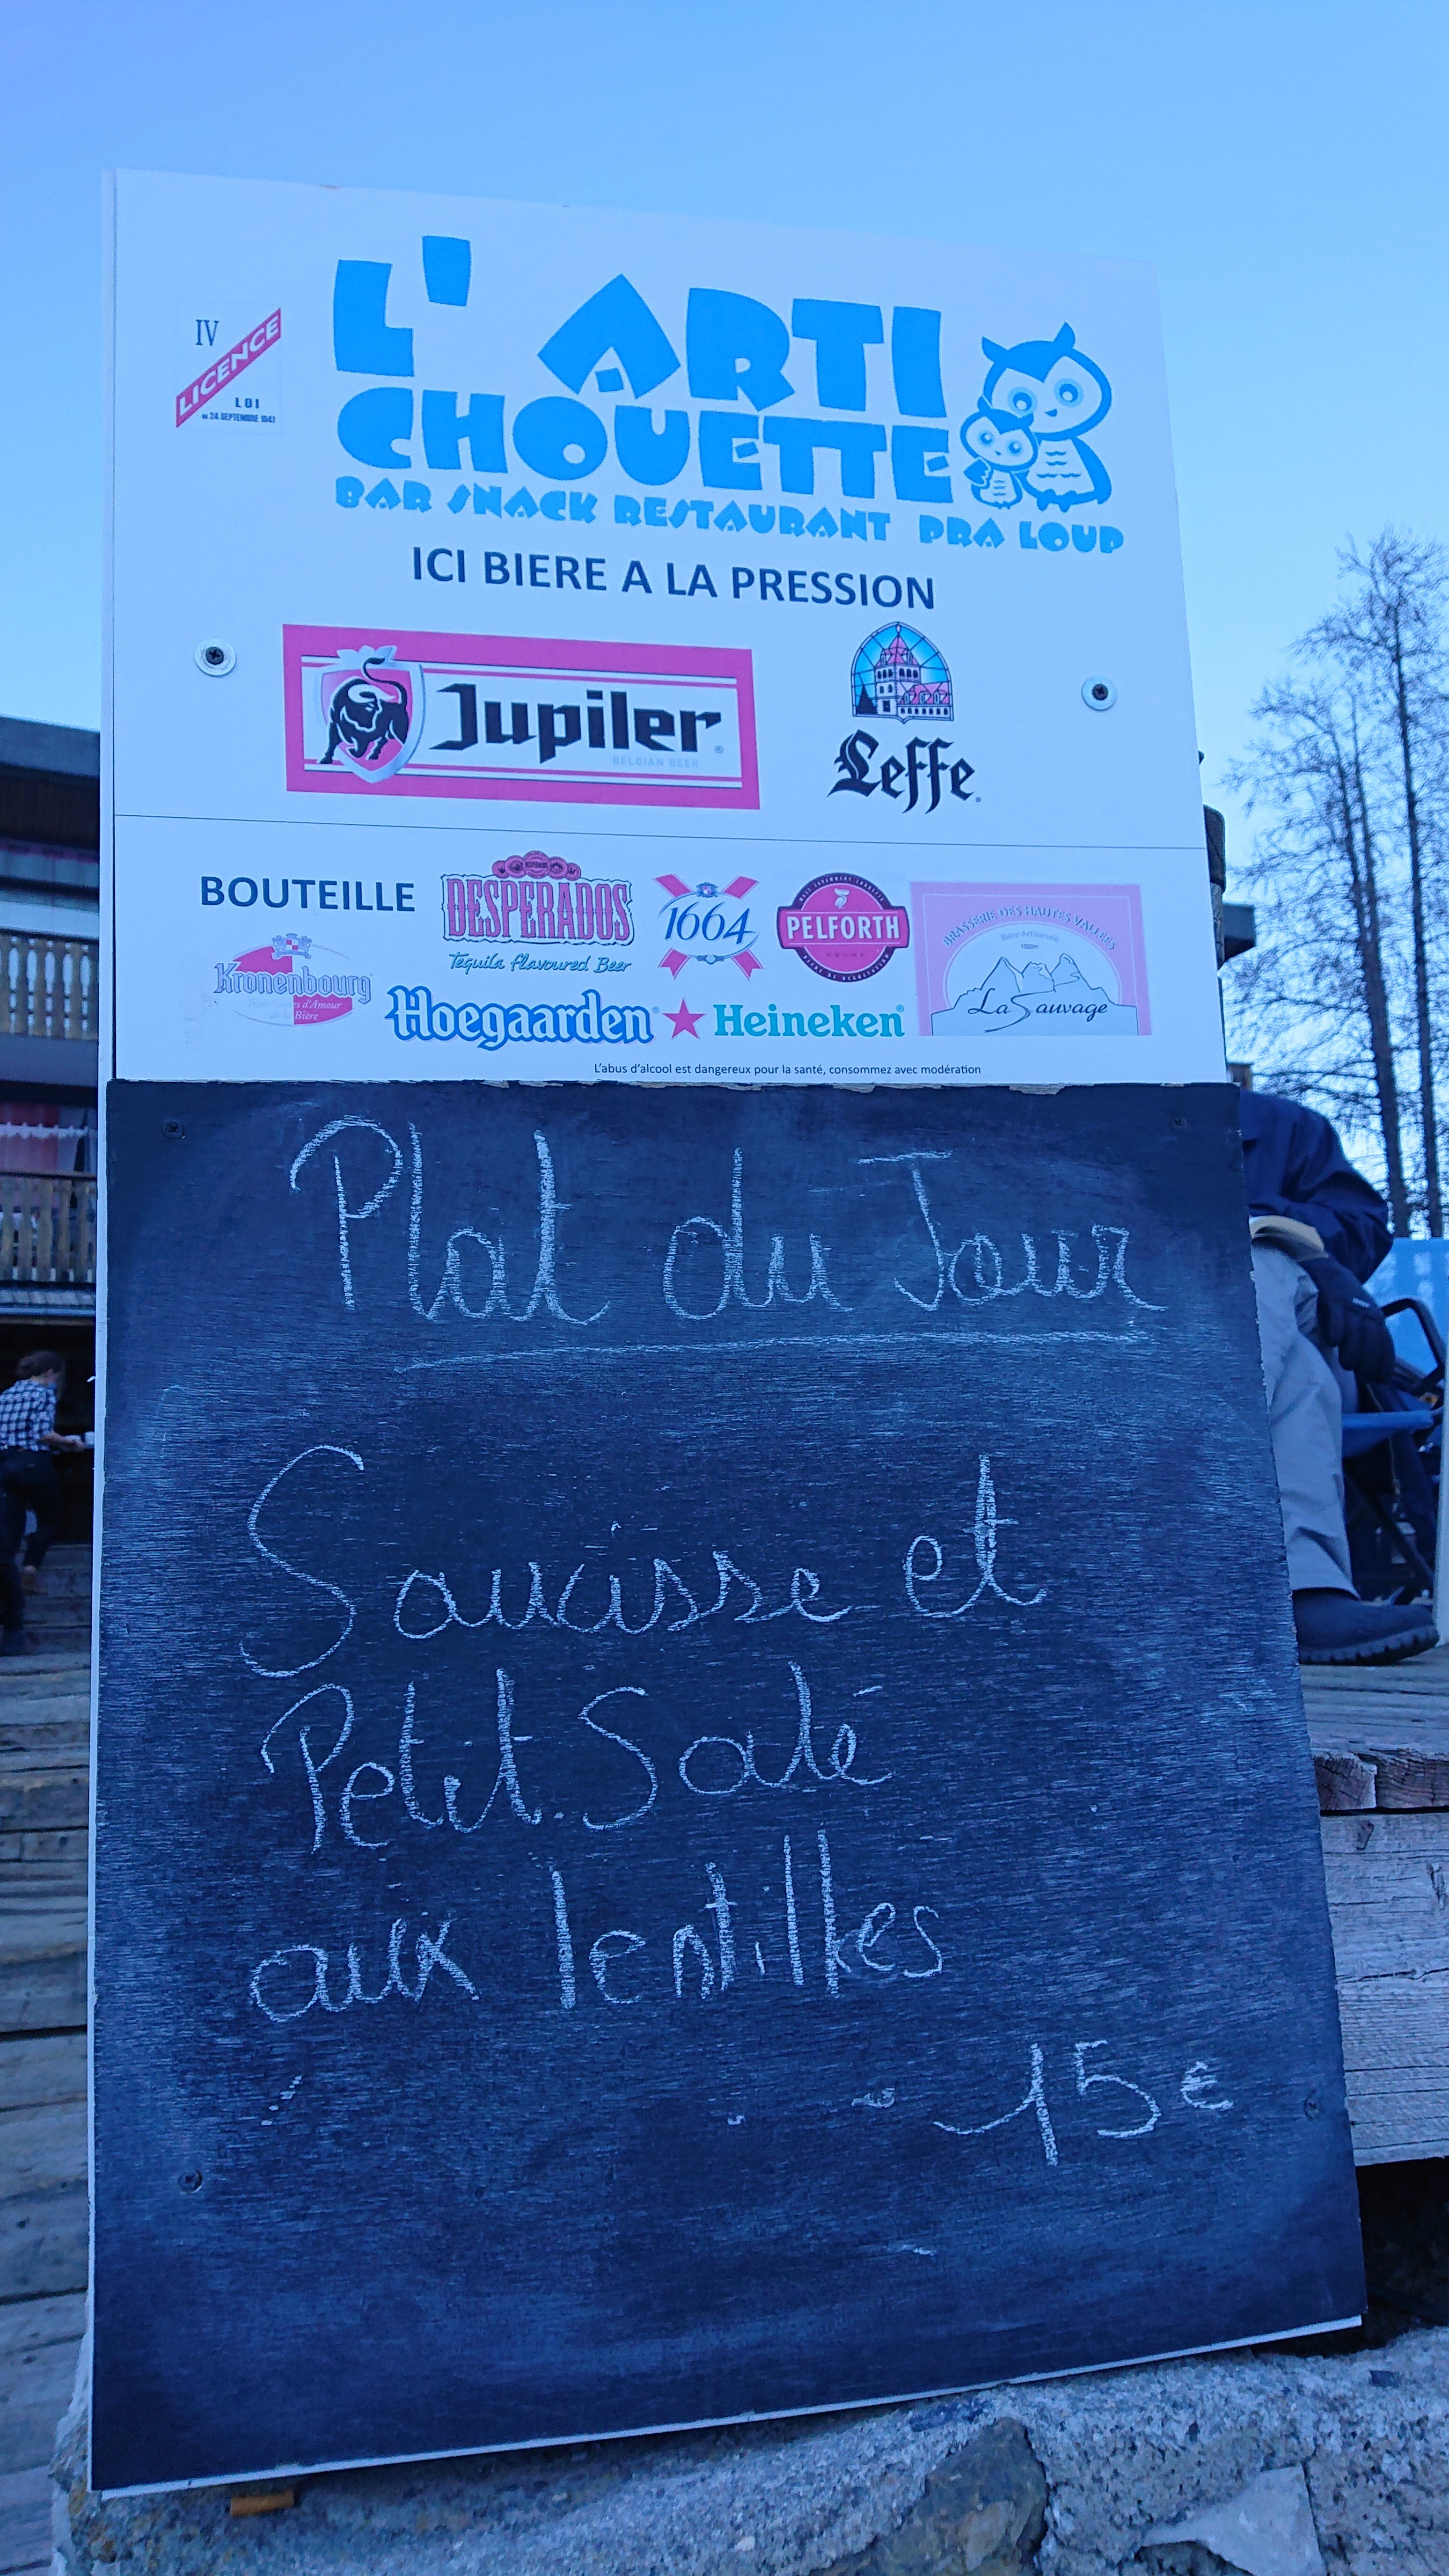 IV
LICENCE
LOI
du 24 SEPTEMBRE 1941
L' ARTI
CHOUETTE
BAR SNACK RESTAURANT PRA LOUP
ICI BIERE A LA PRESSION
Jupiler
BELGIAN BEER
Leffe
BOUTEILLE
DESPERADOS
Tequila flavoured Beer
1664
PELFORTH
BRUNE
BRASSERIE DES HAUTES VALLÉES
Bière Artisanale
1500m
La Sauvage
Kronenbourg
d'Amour
de la Bière
Hoegaarden
Heineken
L'abus d'alcool est dangereux pour la santé, consommez avec modération
Plat du Jour
Saucisse et
Petit Salé
aux lentilles
15€